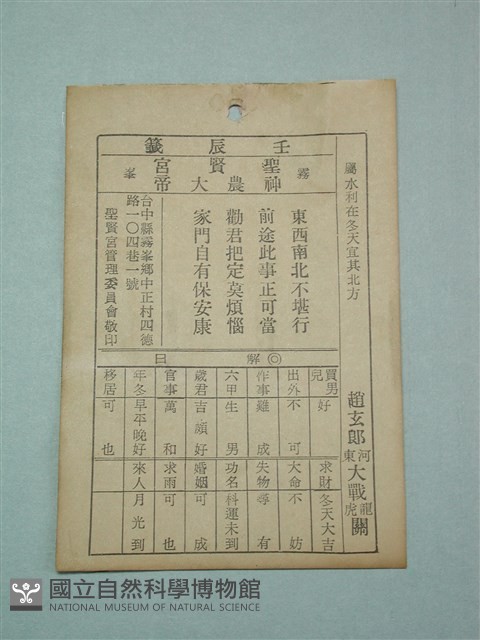 壬辰籤
霧峯
聖賢宮
神農大帝
屬水利在冬天宜其北方
趙玄郎
河東
大戰
龍虎
關
東西南北不堪行
前途此事正可當
勸君把定莫煩惱
家門自有保安康
台中縣霧峯鄉中正村四德
路一〇四巷一號
聖賢宮管理委員會敬印
◎解曰
買男兒 好
出外 不可
作事 難成
六甲 生男
歲君 吉頭好
官事 萬和
年冬 早平晚好
移居 可也
求財 冬天大吉
大命 不妨
失物 尋有
功名 科運未到
婚姻 可成
求雨 可也
來人 月光到
國立自然科學博物館
NATIONAL MUSEUM OF NATURAL SCIENCE